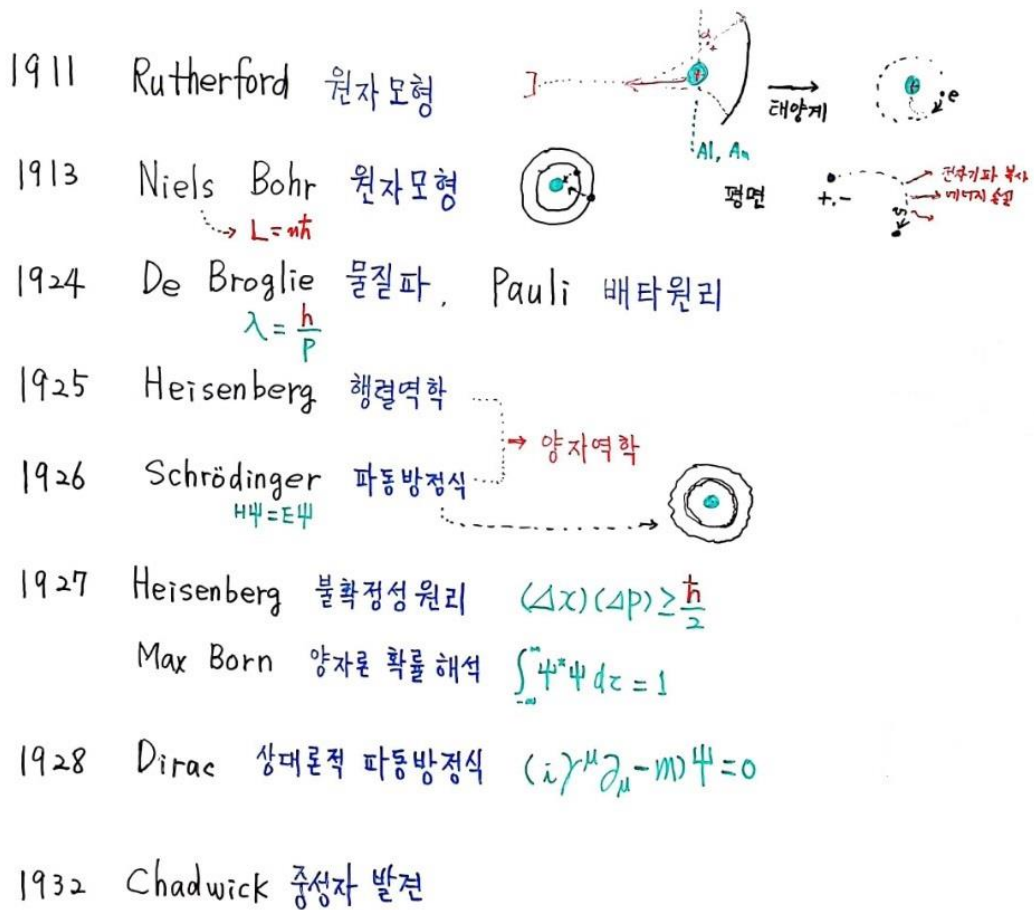 1911 Rutherford 원자모형
+
Al, Au
태양계
+
e
1913 Niels Bohr 원자모형
L=nħ
평면
+.-
전자기파 복사
에너지 손실
1924 De Broglie 물질파, Pauli 배타원리
λ = h/P
1925 Heisenberg 행렬역학
→ 양자역학
1926 Schrödinger 파동방정식
HΨ=EΨ
1927 Heisenberg 불확정성원리 (Δx)(Δp) ≥ ħ/2
Max Born 양자론 확률 해석 ∫₋∞^∞ Ψ*Ψ dτ = 1
1928 Dirac 상대론적 파동방정식 (iγ^μ∂_μ-m)Ψ=0
1932 Chadwick 중성자 발견